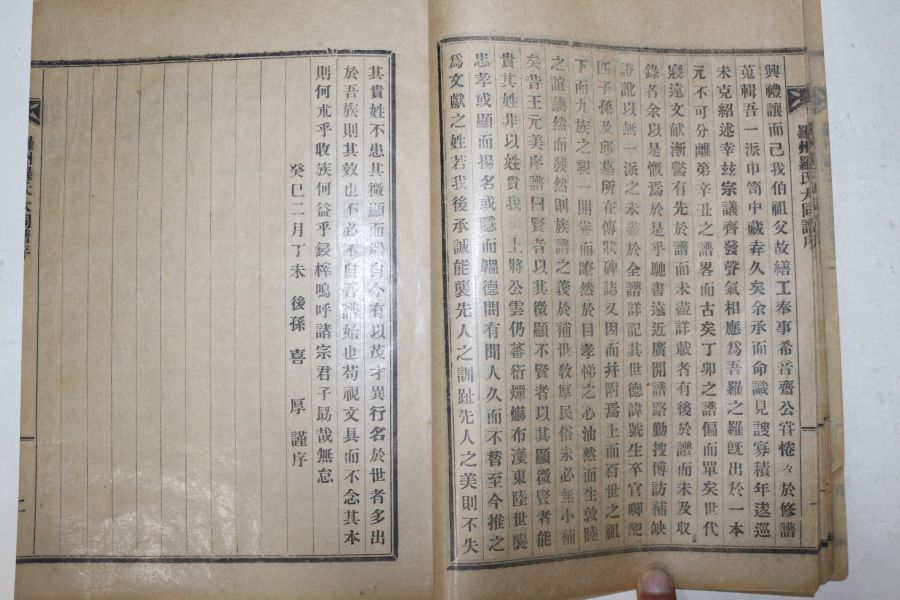 興禮讓而已我伯祖父故繕工奉事希音齋公嘗惓々於修譜
蒐輯吾一派巾笥中藏弆久矣余承而命識見謏寡積年逡巡
未克紹述幸玆宗議齊發聲氣相應爲吾羅之羅旣出於一本
元不可分離第辛丑之譜畧而古矣丁卯之譜偏而單矣世代
寢遠文献漸鬱有先於譜而未盡詳載者有後於譜而未及収
錄者余以是慨焉於是乎馳書遠近廣開譜路勤搜博訪補缺
證訛以無一派之未盡於全譜詳記其世德諱號生卒官啣配
四子孫及邱墓所在傳狀碑誌又因而幷附焉上而百世之祖
下而九族之親一開卷而瞭然於目孝悌之心油然而生敦睦
之誼藹然而發然則族譜之義於補世敎厚民俗未必無小補
矣昔王元美序譜曰賢者以其微顯不賢者以其顯微賢者能
貴其姓非以姓貴我 上將公雲仍蕃衍燀爀布漢東陸世襲
忠孝或顯而揚名或隱而韞德間有聞人久而不替至今推之
爲文獻之姓若我後承誠能襲先人之訓趾先人之美則不失
羅州羅氏大同譜序
其貴姓不患其微顯而從自今有以茂才異行名於世者多出
於吾族則其效也不必不自吾譜始也苟視文具而不念其本
則何朮乎收族何益乎鋟梓嗚呼諸宗君子勗哉無忘
癸巳二月丁未 後孫 喜 厚 謹序